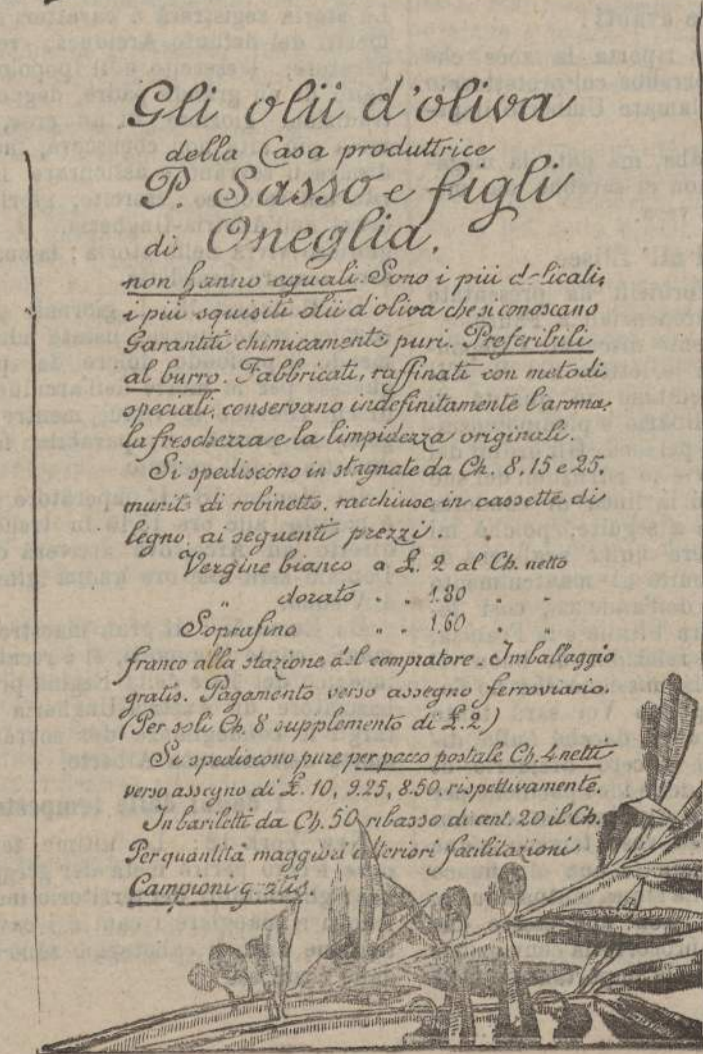 Gli olii d'oliva
della Casa produttrice
P. Sasso e figli
di Oneglia.
non hanno eguali. Sono i più delicati,
i più squisiti olii d'oliva che si conoscano
Garantiti chimicamente puri. Preferibili
al burro. Fabbricati, raffinati con metodi
speciali, conservano indefinitamente l'aroma,
la freschezza e la limpidezza originali.
Si spediscono in stagnate da Ch. 8, 15 e 25,
munite di robinetto, racchiuse in cassette di
legno, ai seguenti prezzi.
Vergine bianco a £. 2 al Ch. netto
" dorato " " 1.80 " "
Soprafino " " 1.60 " "
franco alla stazione del compratore. Imballaggio
gratis. Pagamento verso assegno ferroviario.
(Per soli Ch. 8 supplemento di £. 2)
Si spediscono pure per pacco postale Ch. 4 netti
verso assegno di £. 10, 9.25, 8.50, rispettivamente.
In bariletti da Ch. 50 ribasso di cent. 20 il Ch.
Per quantità maggiori ulteriori facilitazioni
Campioni gratis.